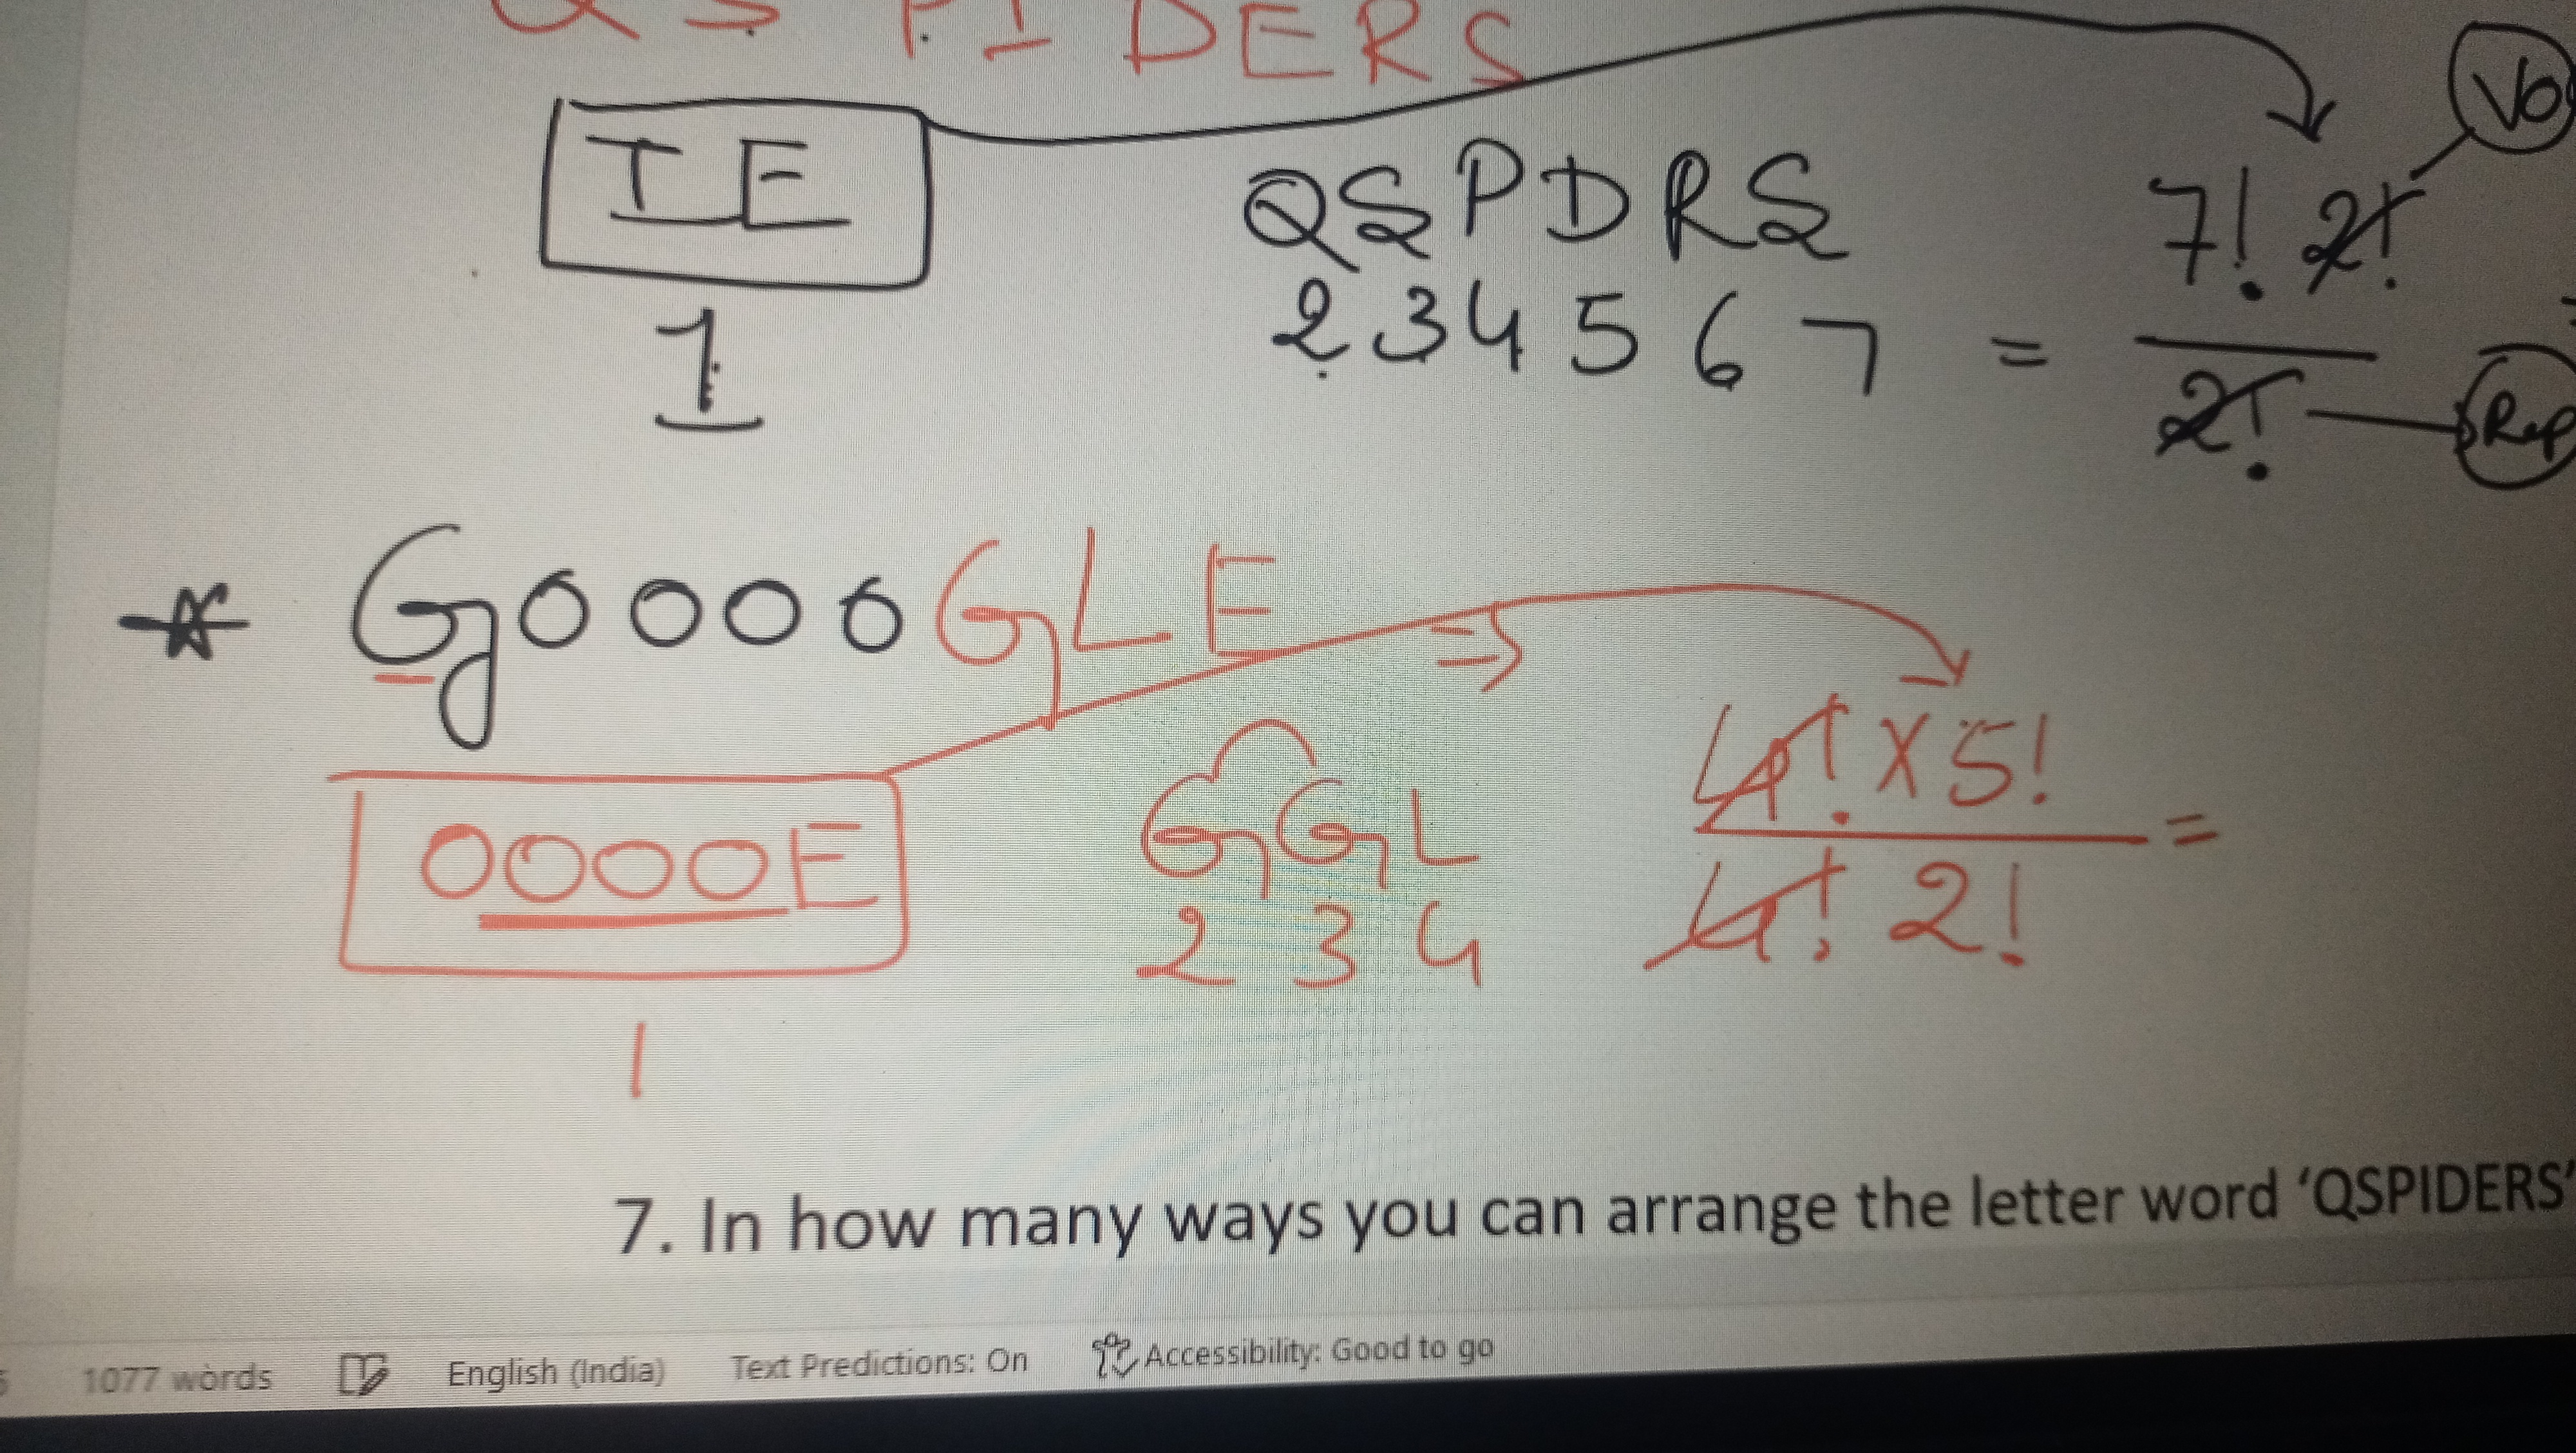 Q S P I D E R S
IE QSPDRS
1 2 3 4 5 6 7 = 7! 2!
2!
* GOOOOGLE ⇒
OOOOE GGL 4! × 5!
1 2 3 4 4! 2! =
7. In how many ways you can arrange the letter word 'QSPIDERS'
1077 words English (India) Text Predictions: On Accessibility: Good to go